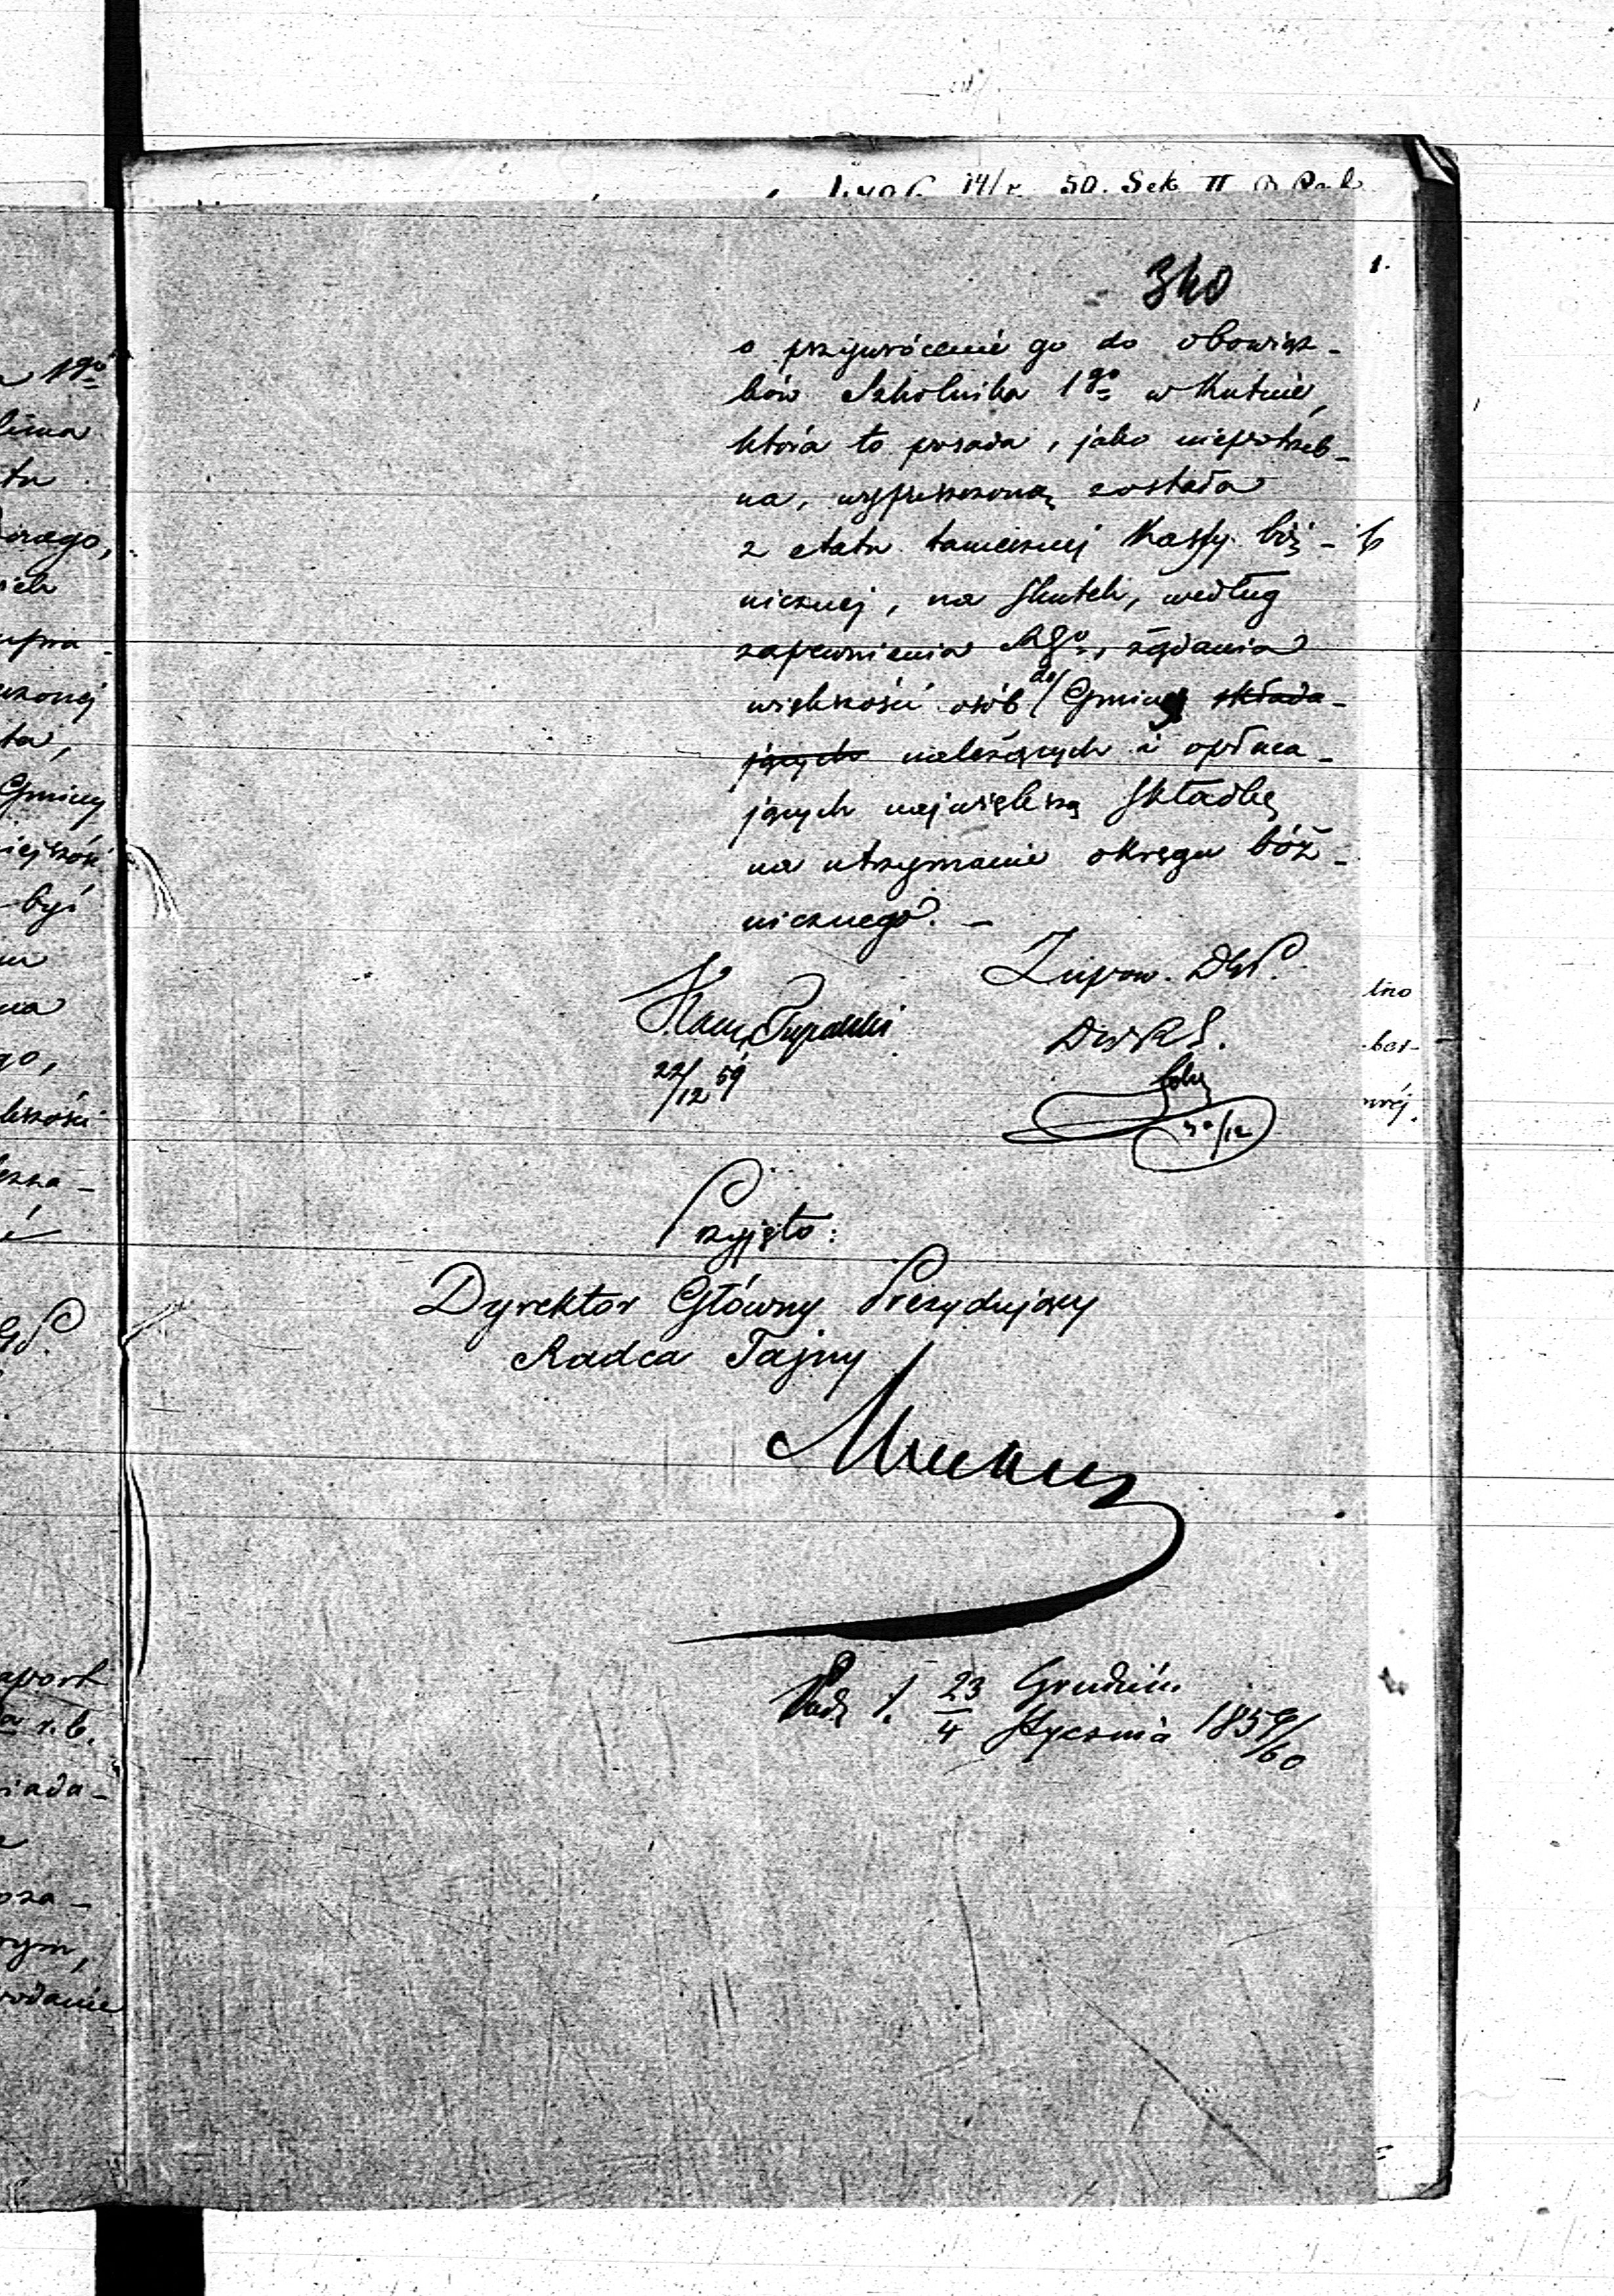 50. Sek II
340
1.
o przywrócenie go do obowiąz-
ków Szkolnika 1go w Kutnie,
która to posada, jako niepotrzeb-
na, wypuszczoną została
z etatu tamecznej Kassy bóż-
nicznej, na skutek, według
zapewnienia Mgo, żądania
większości osób do Gminy składa-
jących należących i opłaca-
jących największą składkę
na utrzymanie okręgu bóż-
nicznego. —
Zupow. DGP.
22/12 59
30/12
Przyjęto:
Dyrektor Główny Prezydujący
Radca Tajny
23 Grudnia
4 Stycznia 1859/60
1go
tu
Gminy
być
go,
aport
r. b.